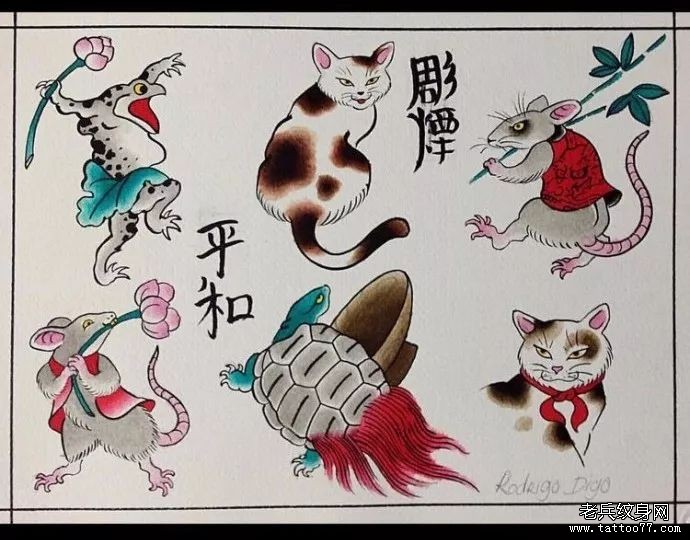 彫煙
平和
Rodrigo Digo
老兵纹身网
www.tattoo77.com